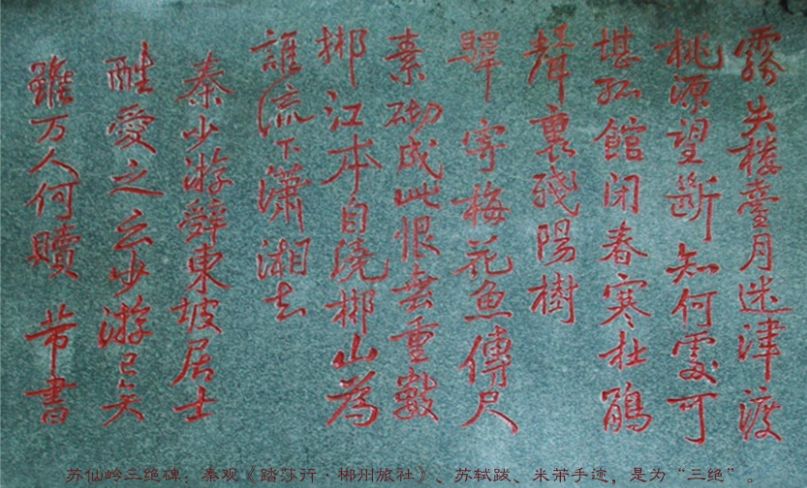 霧失楼臺月迷津渡
桃源望斷知何處可
堪孤館闭春寒杜鵑
聲裏殘陽樹
驛寄梅花魚傳尺
素砌成此恨無重數
郴江本自繞郴山為
誰流下瀟湘去
秦少游辭東坡居士
酷愛之云少游已矣
雖万人何贖 芾書
苏仙岭三绝碑：秦观《踏莎行·郴州旅社》、苏轼跋、米芾手迹，是为“三绝”。